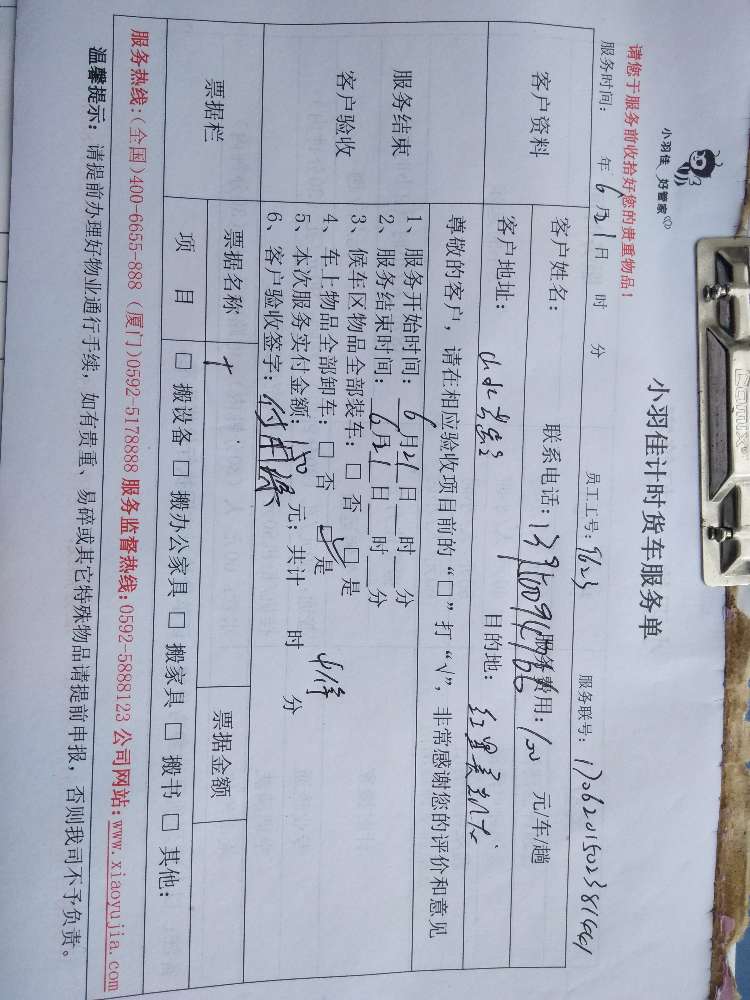 小羽佳 好管家
小羽佳计时货车服务单
请您于服务前收拾好您的贵重物品！
服务时间： 年 6月21日 时 分 员工工号：9623 服务联号：
客户资料
客户姓名： 联系电话： 服务费用：100 元/车/趟
客户地址： 目的地：
尊敬的客户，请在相应验收项目前的“□”打“√”，非常感谢您的评价和意见
服务结束
客户验收
1、服务开始时间：6月21日__时__分
2、服务结束时间：6月21日__时__分
3、候车区物品全部装车：□ 否 □ 是
4、车上物品全部卸车：□ 否 ☑ 是
5、本次服务实付金额：150元；共计 时 分
6、客户验收签字：
票据栏 票据名称 票据金额
项 目 □ 搬设备 □ 搬办公家具 □ 搬家具 □ 搬书 □ 其他：
服务热线：(全国)400-6655-888 (厦门)0592-5178888 服务监督热线：0592-5888123 公司网站：www.xiaoyujia.com
温馨提示：请提前办理好物业通行手续，如有贵重、易碎或其它特殊物品请提前申报，否则我司不予负责。